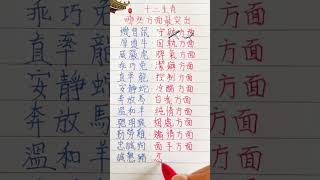 十二生肖
哪些方面最突出
機智鼠 守財方面
厚道牛 固執方面
威嚴虎 脾氣方面
乖巧兔 潔癖方面
直率龍 控制方面
安靜蛇 冷酷方面
奔放馬 自我方面
溫和羊 純情方面
聰明猴
勤勞雞 煽情方面
忠誠狗 面子方面
誠懇豬
乖巧
直率龍
安靜蛇
奔放馬
溫和羊